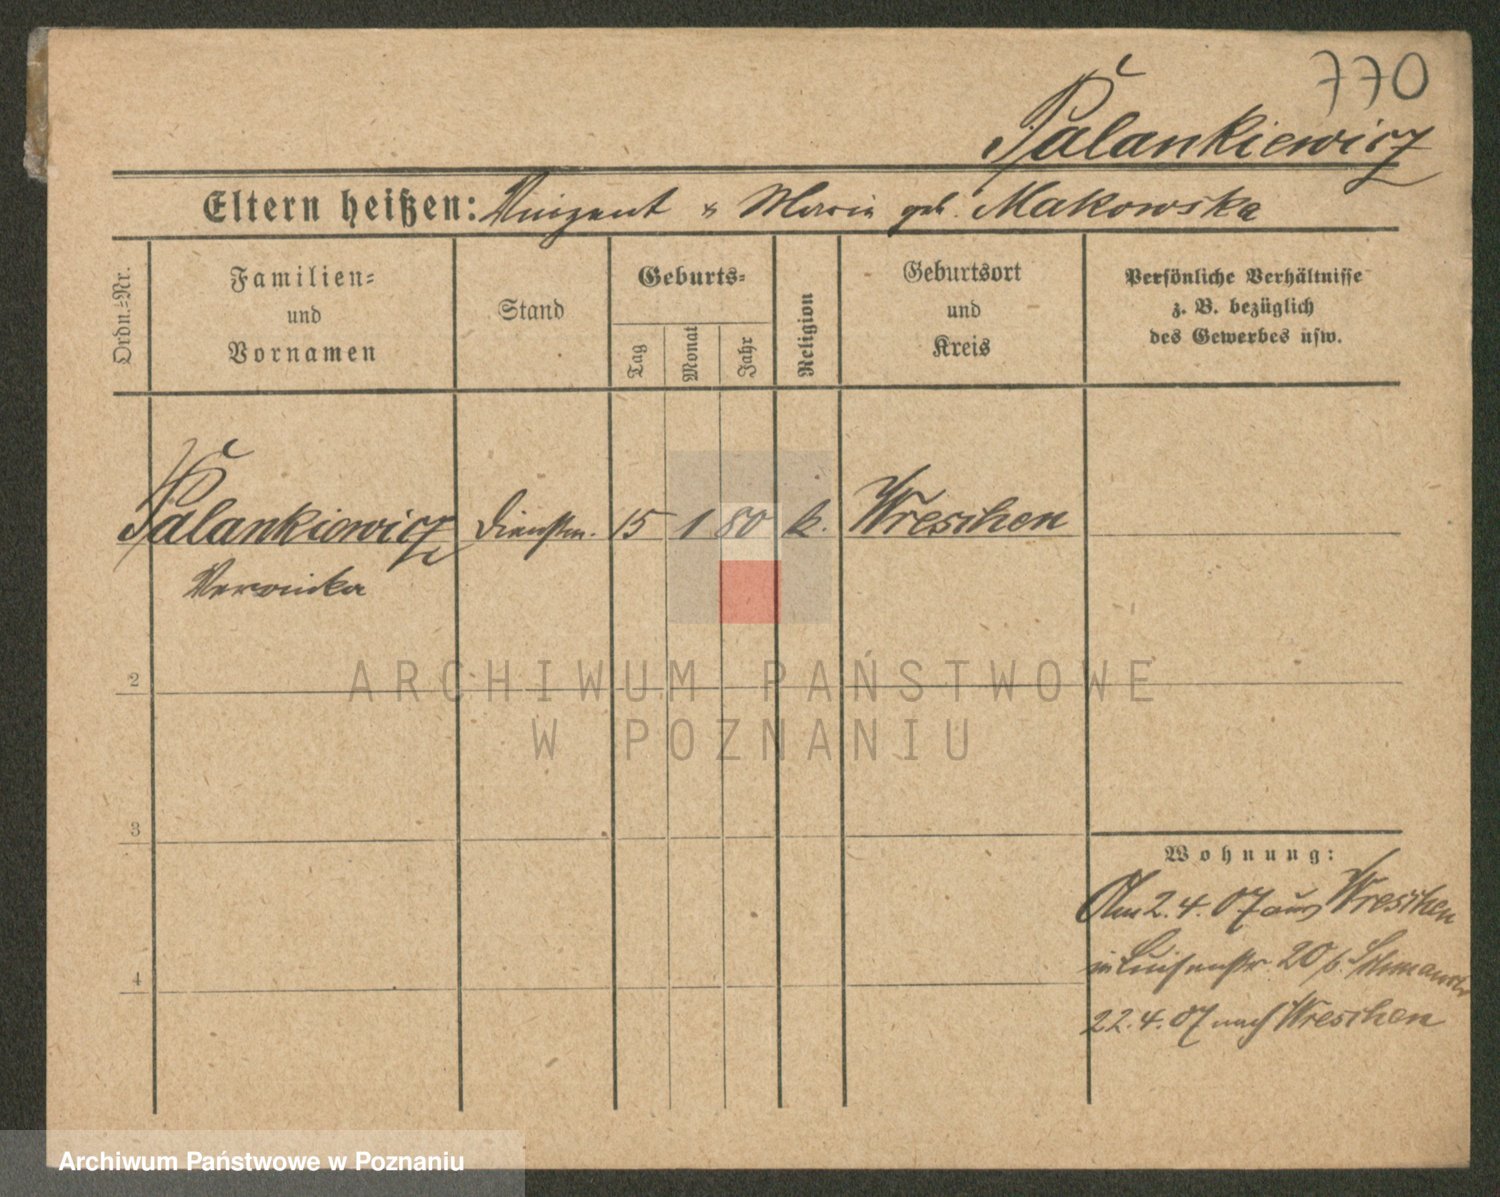 770
Palankiewicz
Eltern heißen: Vinzent & Maria geb. Makowska
Ordn.-Nr.
Familien-
und
Vornamen
Stand
Geburts-
Tag
Monat
Jahr
Religion
Geburtsort
und
Kreis
Persönliche Verhältnisse
z. B. bezüglich
des Gewerbes usw.
Palankiewicz Dienstm. 15 1 80 k. Wreschen
Veronika
2
3
4
Wohnung:
Am 2.4.07 aus Wreschen
in Luisenstr. 20 b.
22.4.07 nach Wreschen
ARCHIWUM PAŃSTWOWE
W POZNANIU
Archiwum Państwowe w Poznaniu